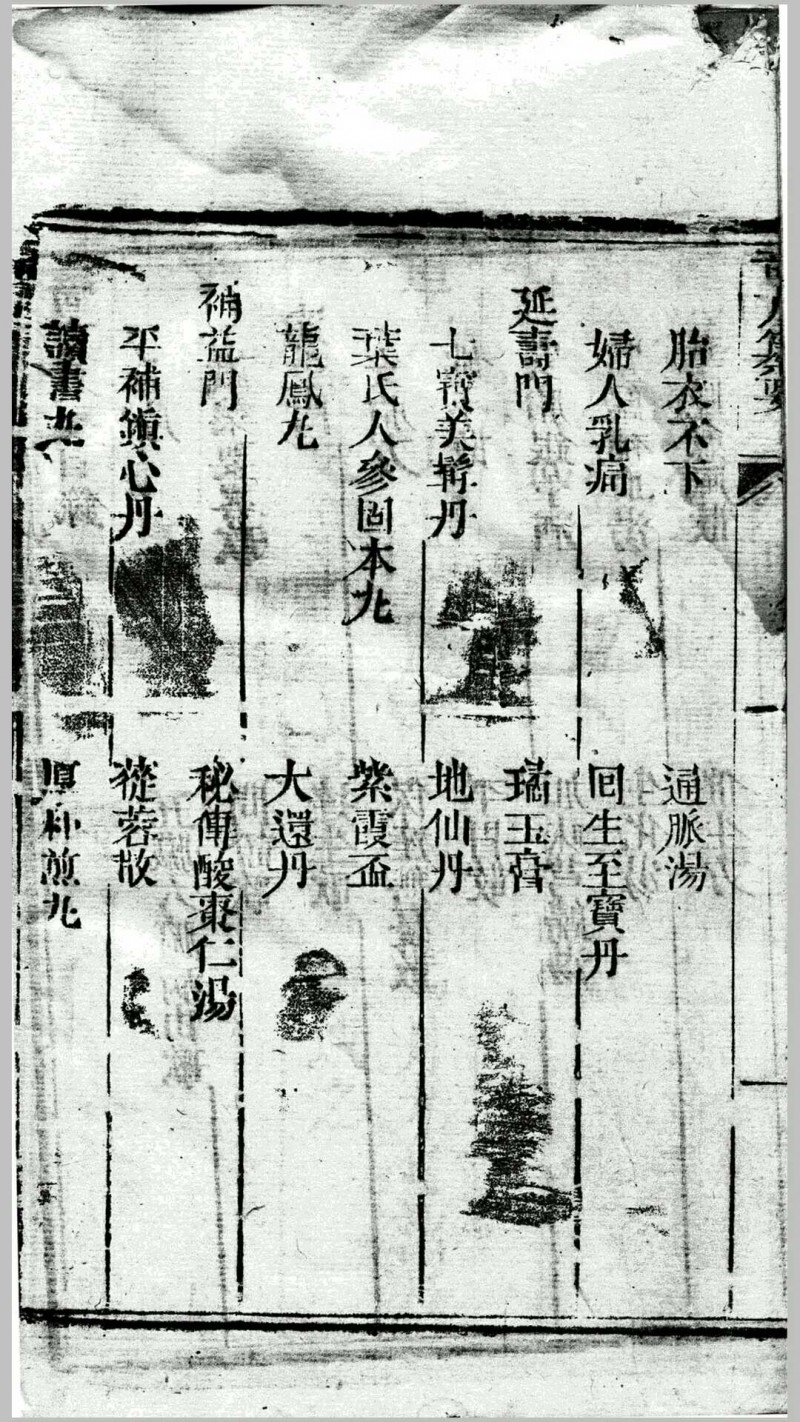 胎衣不下
通脈湯
婦人乳痛
回生至寶丹
延壽門
瓊玉膏
七寶美髯丹
地仙丹
葉氏人參固本丸
紫霞盃
龍鳳丸
大還丹
補益門
秘傳酸棗仁湯
平補鎮心丹
蓯蓉散
讀書丸
厚朴煎丸